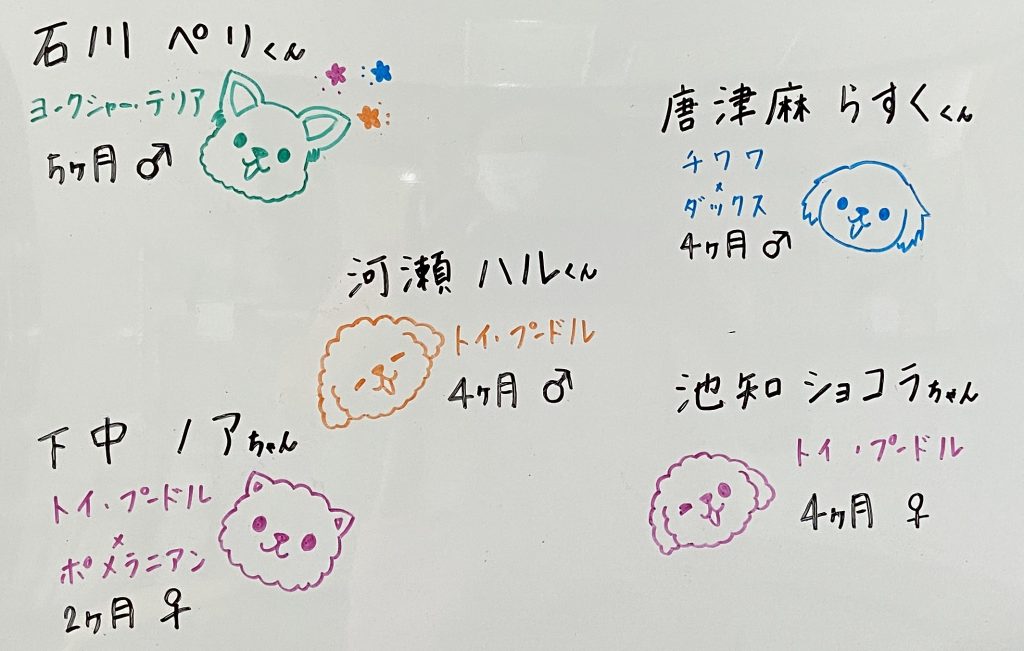 石川 ペリくん
ヨークシャー・テリア
5ヶ月 ♂
唐津麻 らすくくん
チワワ
×
ダックス
4ヶ月 ♂
河瀬 ハルくん
トイ・プードル
4ヶ月 ♂
池知 ショコラちゃん
トイ・プードル
4ヶ月 ♀
下中 ノアちゃん
トイ・プードル
×
ポメラニアン
2ヶ月 ♀